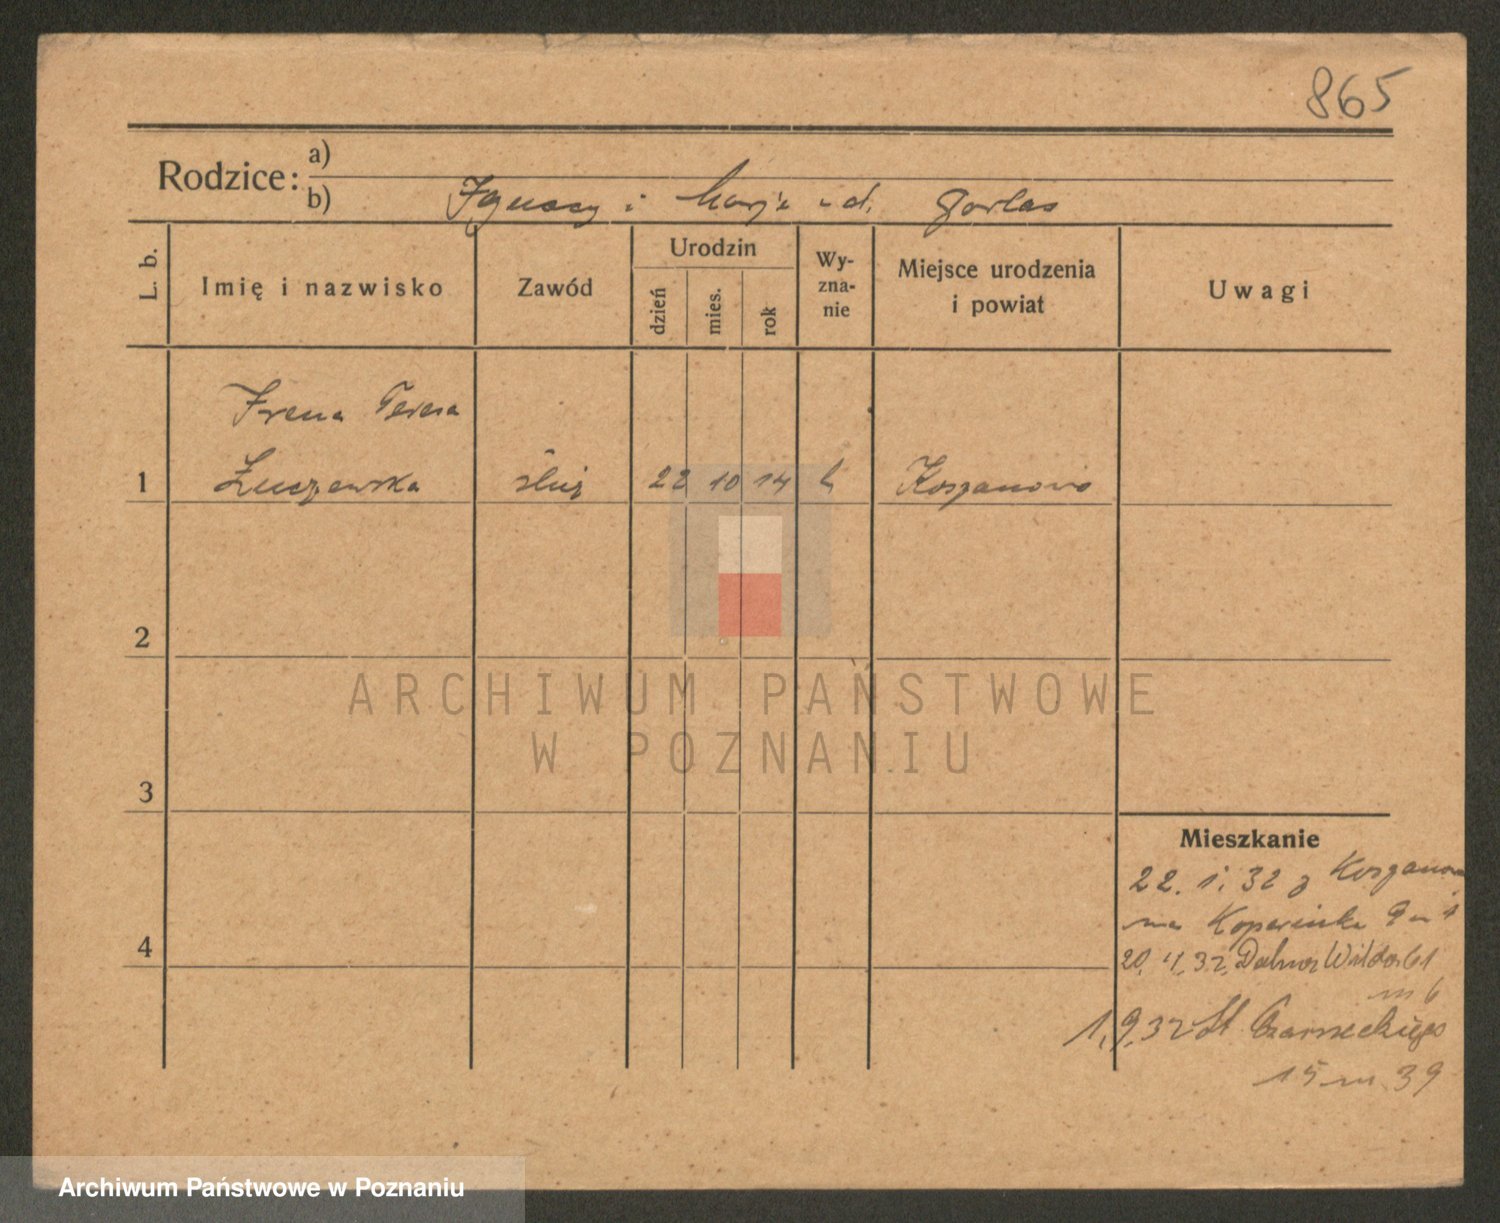 865
Rodzice:
a)
b) Ignacy i Marja z d. Gorlas
L. b.
Imię i nazwisko
Zawód
Urodzin
dzień
mies.
rok
Wy-
zna-
nie
Miejsce urodzenia
i powiat
Uwagi
Irena Teresa
1 Łuczewska służ 22 10 14 k Koszanowo
2
ARCHIWUM PAŃSTWOWE
W POZNANIU
3
Mieszkanie
22. 1. 32 z Koszanowa
na Kopernika 9 m 1
4
20. 4. 32. Dolna Wilda 61
m 6
1. 9. 32 St Czarneckiego
15 m 39
Archiwum Państwowe w Poznaniu